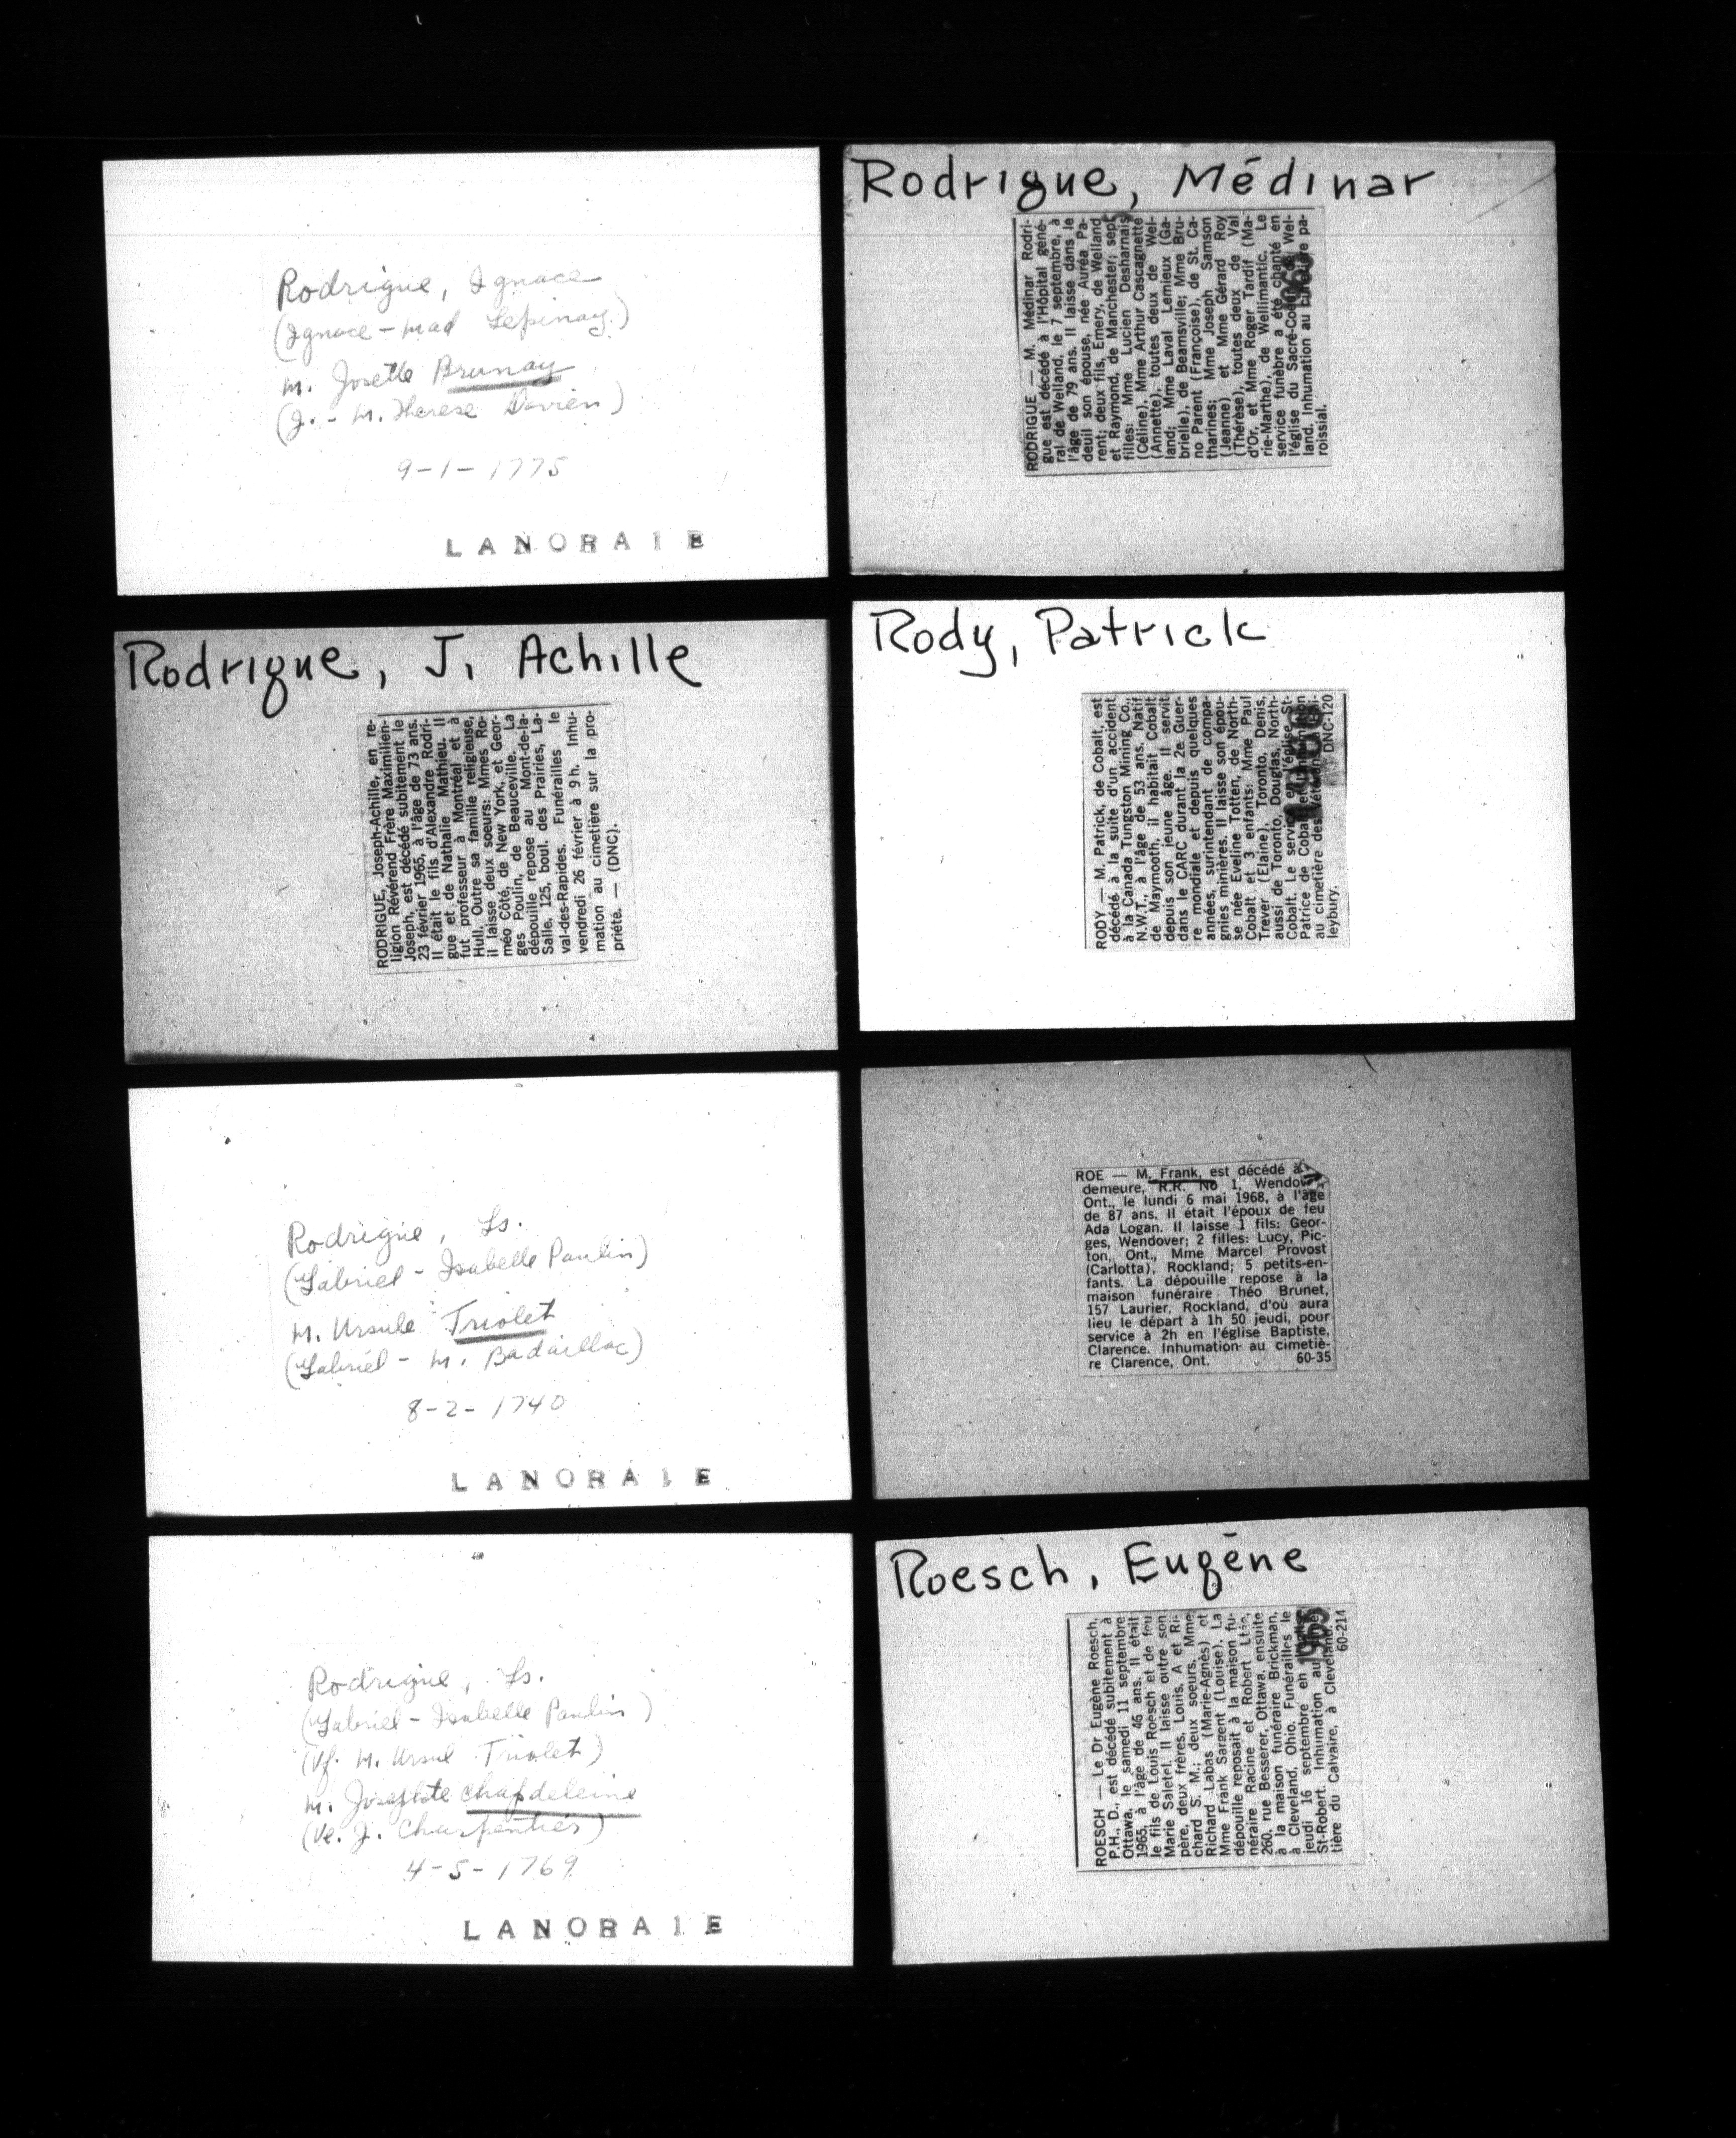 Rodrigue, Ignace
(Ignace - Mad Lepinay)
m. Josette Brunay
(J. - M. Therese Dorien)
9-1-1775
LANORAIE
Rodrigue, J. Achille
RODRIGUE, Joseph-Achille, en re-
ligion Révérend Frère Maximilien-
Joseph, est décédé subitement le
23 février 1965, à l'âge de 73 ans.
Il était le fils d'Alexandre Rodri-
gue et de Nathalie Mathieu. Il
fut professeur à Montréal et à
Hull. Outre sa famille religieuse,
il laisse deux soeurs: Mmes Ro-
méo Côté, de New York, et Geor-
ges Poulin, de Beauceville. La
dépouille repose au Mont-de-la-
Salle, 125, boul. des Prairies, La-
val-des-Rapides. Funérailles le
vendredi 26 février à 9 h. Inhu-
mation au cimetière sur la pro-
priété. — (DNC).
Rodrigue, Ls.
(Gabriel - Isabelle Paulin)
M. Ursule Triolet
(Gabriel - M. Badaillac)
8-2-1740
LANORAIE
Rodrigue, Ls.
(Gabriel - Isabelle Paulin)
(Vf. M. Ursul Triolet)
M. Josephte Chapdeleine
(Ve. J. Charpentier)
4-5-1769
LANORAIE
Rodrigue, Médinar
RODRIGUE — M. Médinar Rodri-
gue est décédé à l'Hôpital géné-
ral de Welland, le 7 septembre, à
l'âge de 79 ans. Il laisse dans le
deuil son épouse, née Auréa Pa-
rent; deux fils, Emery, de Welland
et Raymond, de Manchester; sept
filles: Mme Lucien Desharnais
(Céline), Mme Arthur Cascagnette
(Annette), toutes deux de Wel-
land; Mme Laval Lemieux (Ga-
brielle), de Beamsville; Mme Bru-
no Parent (Françoise), de St. Ca-
tharines; Mme Joseph Samson
(Jeanne) et Mme Gérard Roy
(Thérèse), toutes deux de Val
d'Or, et Mme Roger Tardif (Ma-
rie-Marthe), de Wellimantic. Le
service funèbre a été chanté en
l'église du Sacré-Coeur de Wel-
land. Inhumation au cimetière pa-
roissial.
Rody, Patrick
RODY — M. Patrick, de Cobalt, est
décédé à la suite d'un accident
à la Canada Tungston Mining Co.,
N.W.T., à l'âge de 53 ans. Natif
de Maymooth, il habitait Cobalt
depuis son jeune âge. Il servit
dans le CARC durant la 2e Guer-
re mondiale et depuis quelques
années, surintendant de compa-
gnies minières. Il laisse son épou-
se née Eveline Totten, de North-
Cobalt et 3 enfants: Mme Paul
Trever (Elaine), Toronto, Denis,
aussi de Toronto, Douglas, North-
Cobalt. Le service en l'église St-
Patrice de Cobalt et l'inhumation
au cimetière des Vétérans à Hai-
leybury. DNC-120
ROE — M. Frank, est décédé à
demeure, R.R. No 1, Wendover,
Ont., le lundi 6 mai 1968, à l'âge
de 87 ans. Il était l'époux de feu
Ada Logan. Il laisse 1 fils: Geor-
ges, Wendover; 2 filles: Lucy, Pic-
ton, Ont., Mme Marcel Provost
(Carlotta), Rockland; 5 petits-en-
fants. La dépouille repose à la
maison funéraire Théo Brunet,
157 Laurier, Rockland, d'où aura
lieu le départ à 1h 50 jeudi, pour
service à 2h en l'église Baptiste,
Clarence. Inhumation au cimetiè-
re Clarence, Ont. 60-35
Roesch, Eugène
ROESCH — Le Dr Eugène Roesch,
P.H., D., est décédé subitement à
Ottawa, le samedi 11 septembre
1965, à l'âge de 46 ans. Il était
le fils de Louis Roesch et de feu
Marie Saletel. Il laisse outre son
père, deux frères, Louis, A et Ri-
chard S. M.; deux soeurs, Mme
Richard Labas (Marie-Agnès) et
Mme Frank Sargent (Louise). La
dépouille reposait à la maison fu-
néraire Racine et Robert Ltée,
260, rue Besserer, Ottawa, ensuite
à la maison funéraire Brickman,
à Cleveland, Ohio. Funérailles le
jeudi 16 septembre en l'église
St-Robert. Inhumation au cime-
tière du Calvaire, à Cleveland.
60-214
1965